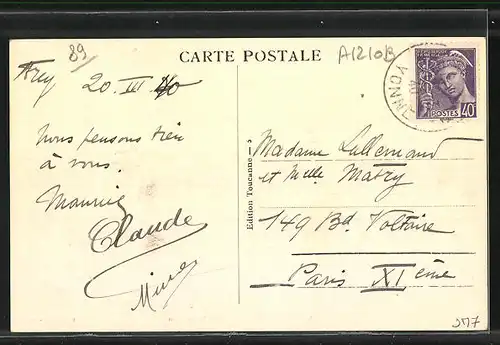 89
CARTE POSTALE
A1210B
20 III 40
YONNE
POSTES 40
Nous pensons bien
à vous.
Maurice
Claude
Edition Toucanne
Madame Lallemand
et Melle Matry
149 Bd. Voltaire
Paris XIème